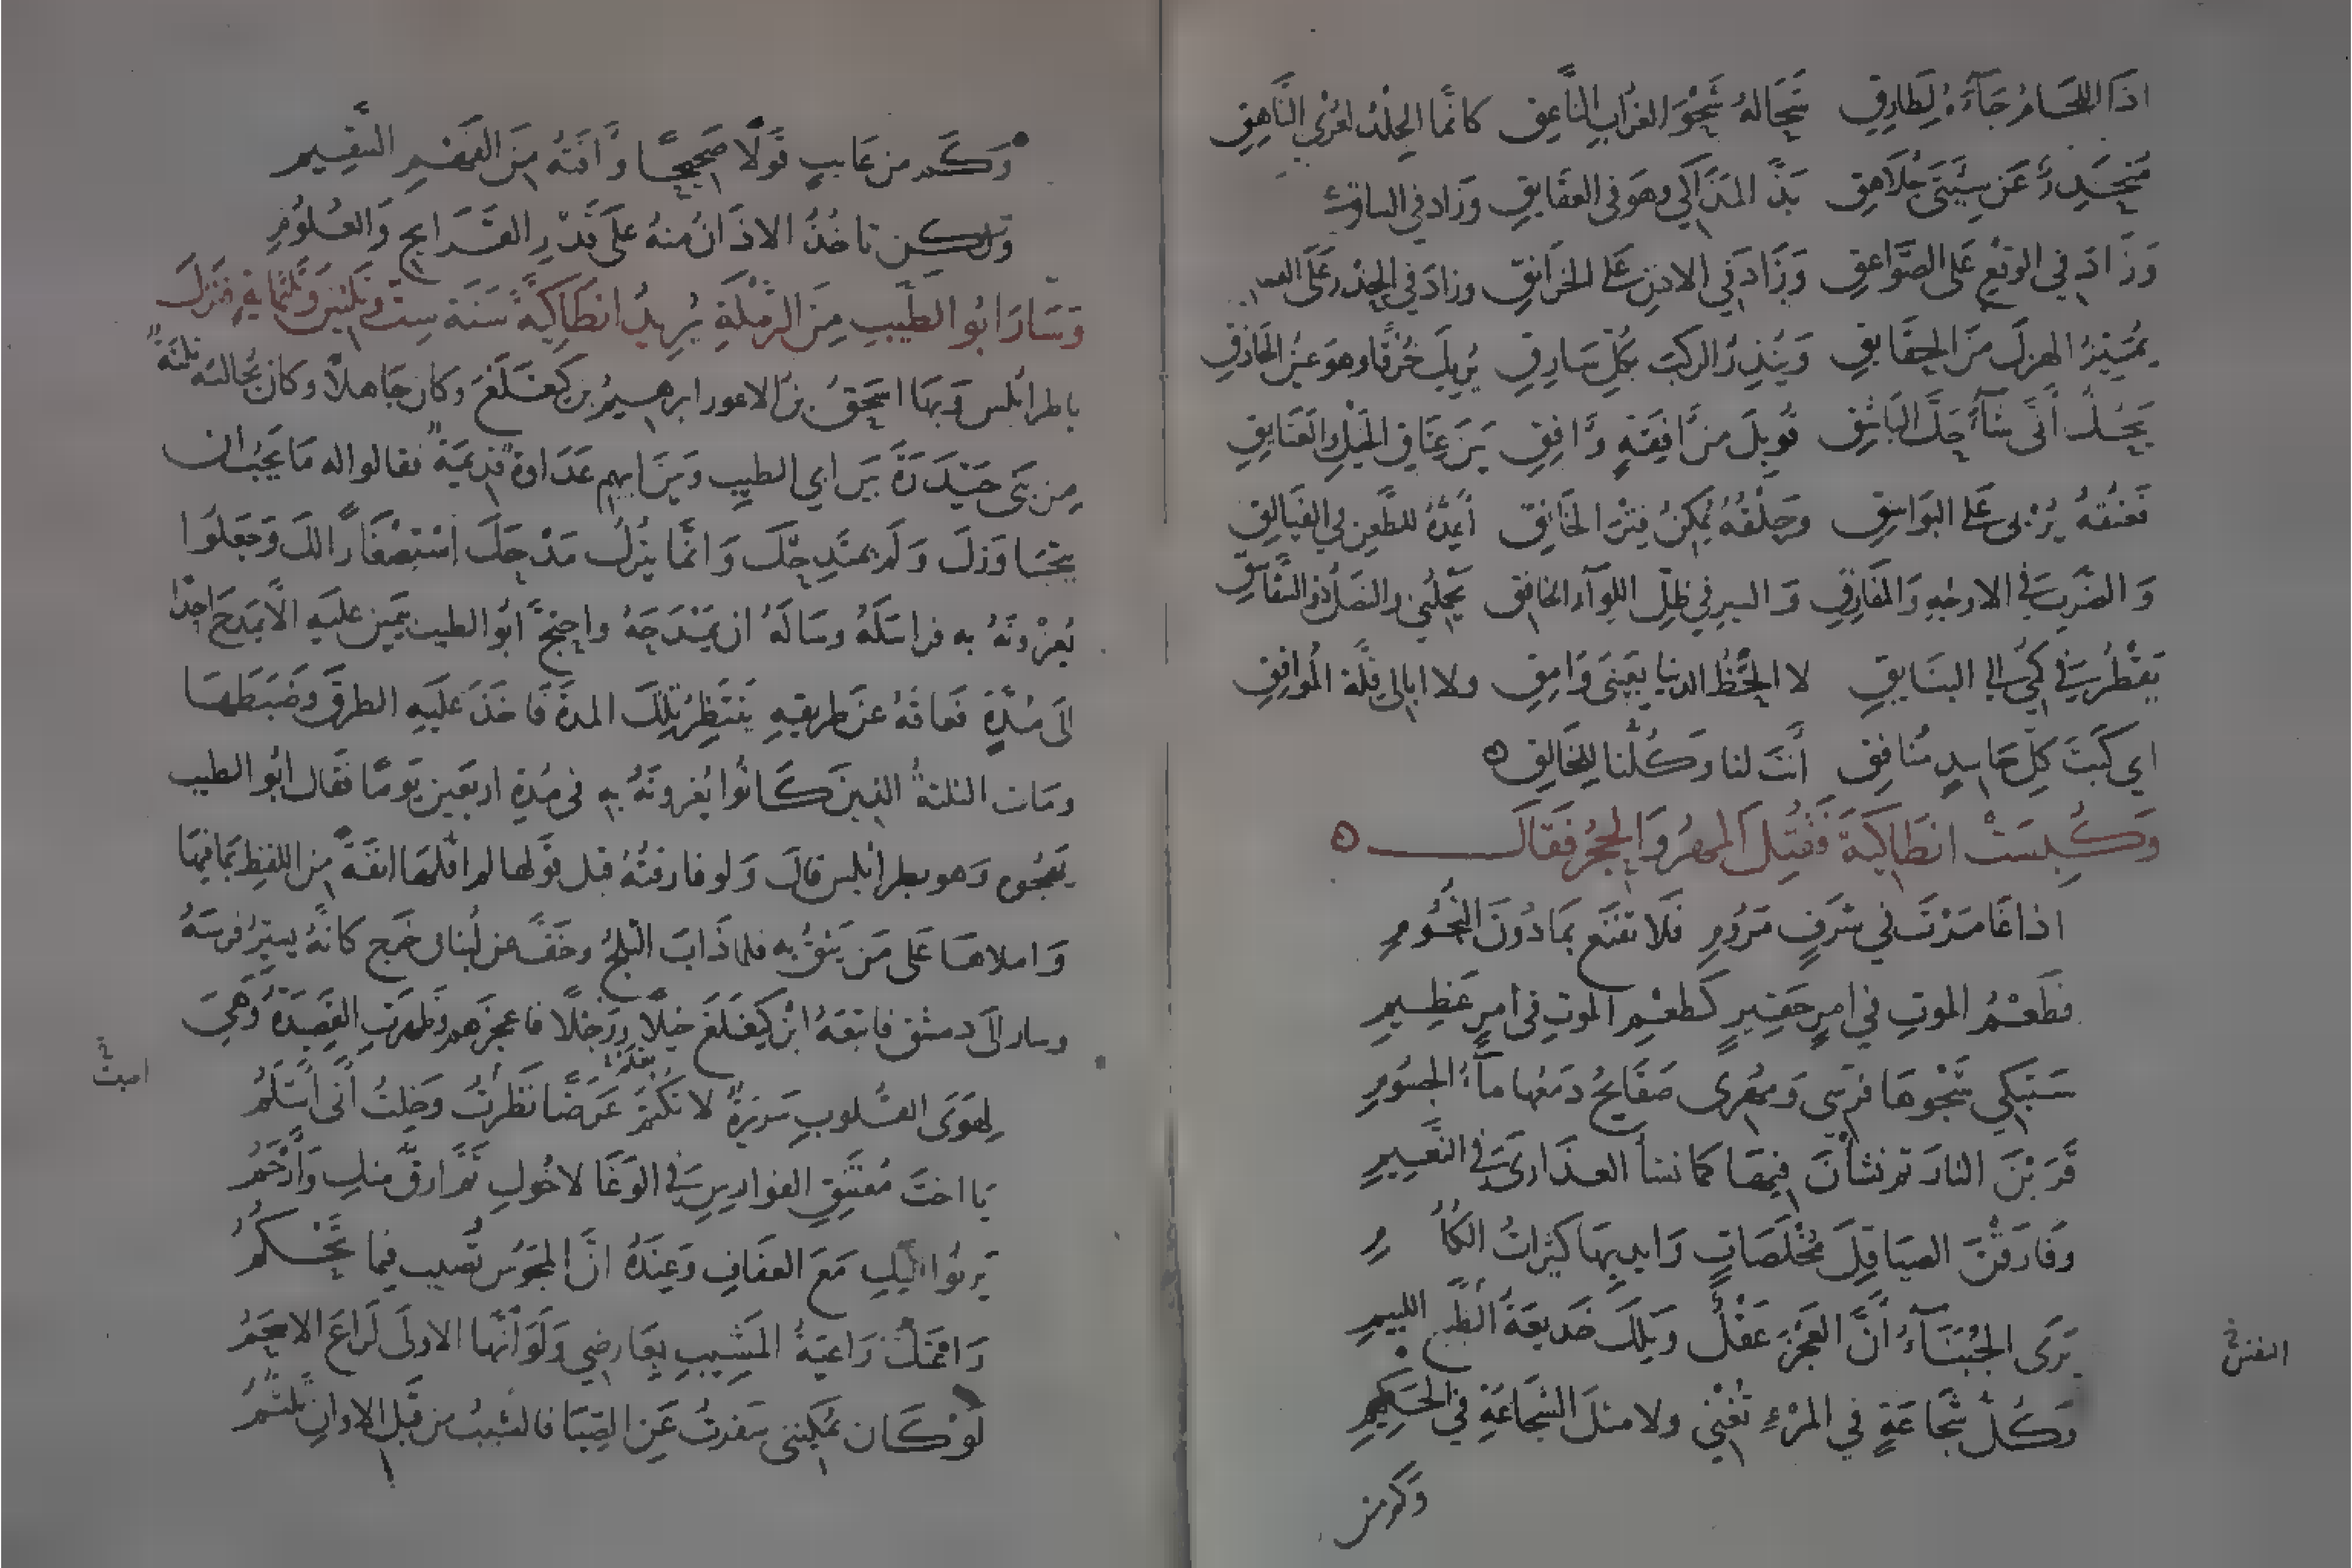 اذا اللجام جَآءَه لِطَارِقِ شَحَاله شَحْوَ الغُرَابِ النَّاعِقِ كانّما الجِلْدُ لِعُرْيِ النَّاهِقِ
مُنْحَدِرٌ عَن سِيَتَي جُلَاهِقِ بَذَّ المَذَاكي وهوَ في العَقَايقِ وزَاد في الساقِ على
وَزَادَ في الوَقْعِ عَلَى الصَّوَاعِقِ وَزَادَ في الاذنِ عَلَى الخَرَانِقِ وزَادَ في الحِذْرِ عَلَى العقاعق
يُمَيِّزُ الهزلَ مِنَ الحَقَايقِ وَيُنذِرُ الرَّكبَ بِكُلِّ سَارِقِ يُرِيكَ خُرْقًا وهوَ عَينُ الحَاذِقِ
يَحُكُّ أَنَّى شآءَ حَكَّ البَاشِقِ قُوبِلَ مِن آفِقَةٍ وَآفِقِ بَيْنَ عِتَاقِ الخَيْلِ والعَتَايِقِ
فَعُنْقُهُ يُرْبي عَلَى البَوَاسِقِ وَحَلْقُهُ يُمكِنُ فِتْرَ الخَانِقِ أُعِدُّهُ للطَّعنِ في الفَيَالِقِ
وَالضَّربِ في الاوجُهِ وَالمَفَارِقِ وَالسيرِ في ظِلِّ اللِّوَآءِ الخَافِقِ يَحْمِلُني والنَّصْلُ ذو السَّفَاسِقِ
يَقْطُرُ في كُمّي الى البَنَايقِ لا الحَظُ الدنيا بِعَيْنَي وَامِقِ ولا ابالي قِلَّةَ المُوافِقِ
اي كَبْتَ كلِّ حَاسِدٍ مُنَافِقِ أَنْتَ لنا وَكُلُّنَا لِلخَالِقِ ه
وَكُبِسَتْ انطَاكِيَةَ فَقُتِلَ المهرُ وَالحجرُ فَقَالَ ه
اذا غَامَرْتَ في شَرَفٍ مَرُومِ فَلَا تقنَع بمَا دُونَ النُّجُومِ
فَطَعْمُ الموتِ في امرٍ حَقيرٍ كَطَعْمِ الموتِ في أمرٍ عَظِيمِ
سَتَبْكي شَجْوَهَا فَرَسي وَمُهْري صَفَايحُ دَمْعُها مآءُ الجسُومِ
قَرَبْنَ النارَ ثم نشأنَ فيهَا كما نشأ العذَارَى في النَّعِيمِ
وَفَارَقْنَ الصيَاقِلَ مُخْلَصَاتٍ وَايديهَا كثيرَاتُ الكُلُومِ
يَرَى الجُبَنَآءُ أنَّ العَجْزَ عَقْلٌ وَتِلكَ خَديعَةُ الطَّبعِ اللَّئيمِ
وَكُلُّ شَجَاعَةٍ في المَرْءِ تُغْني ولا مثلَ الشَّجَاعَةِ في الحَكِيمِ
النفس
وكم من
وَكَم من عَايبٍ قَوْلًا صَحِيحًا وَآفَتُه مِنَ الفَهْمِ السَّقيمِ
وَلكِن تاخُذُ الاذَانُ مِنهُ عَلَى قَدْرِ القَرَايحِ وَالعُلُومِ
وَسَارَ ابُو الطَّيِّبِ مِنَ الرَّمْلَةِ يُرِيدُ انطَاكِيَةَ سَنَةَ سِتٍّ وثلثينَ وثَلثمايةٍ فَنَزَلَ
باطرابلس وَبِهَا اسحَقُ بنُ الاعور ابرهيمُ بن كَيْغَلَغَ وَكَانَ جَاهِلاً وكانَ يُجَالسُه ثلثَةٌ
مِن بَني حَيْدَرَةَ بَيْنَ ابي الطيبِ وَبَيْنَ ابيهِم عَدَاوةٌ قَدِيمَةٌ فقالوا له مَا يجبُ ان
يتجَاوزكَ وَلَم يمتَدِحكَ وَانما يترُكُ مَدْحَكَ اسْتِصْغَارًا لكَ وَجَعَلُوا
يُغْرُونَهُ به فراسَلَهُ وسَالَهُ ان يَمْدَحَهُ واحتجَّ أبُو الطيب بيمينٍ عليَهِ الَّا يمدَحَ احَدًا
الَى مُدّةٍ فَعَاقَهُ عَن طريقهِ ينتَظِرُ تِلكَ المدّةَ فَاخَذَ عَلَيهِ الطرقَ وضَبَطَهَا
ومَات الثلثةُ الذينَ كَانُوا يُغرونَهُ به في مُدّةِ اربَعينَ يَومًا فَقَال ابُو الطيب
يَهجُوه وَهو بطرابلس قالَ وَلو فارقتُهُ قبل قَولها لم اقُلهَا انفَةً مِن اللفظِ بمَا فيهَا
وَاملاهَا عَلى مَن يَثقُ به فلما ذَابَ الثلجُ وخَفَّ عن لُبنان خرج كانّهُ يسيّرُ فرسَهُ
وسار الى دمشق فاتبَعَهُ ابْن كَيغَلَغَ خيلًا وَرَجْلًا فاعجزَهم وظهرَتِ القَصيدَةُ وَهيَ
اسدٌ
لِهَوَى القُلُوبِ سَرِيرَةٌ لا تُعْلَمُ عَرَضًا نَظَرْتُ وَخِلتُ أَنّي اسْلَمُ
يَا اختَ مُعْتَنِقِ الفوارِسِ في الوَغَا لَاخُوكِ ثَمَّ ارَقُّ مِنكِ وَأَرْحَمُ
يَرنُوا اليكِ مَعَ العفَافِ وَعِندَهُ انَّ المجُوسَ تُصيب فيما تَحْكُمُ
رَاعَتْكِ رَاعيَةُ المَشِيبِ بِعَارِضي وَلَوَ انّها الاولَى لَرَاعَ الاسْحَمُ
لَوْ كَان يُمكِنني سَفرتُ عَنِ الصِّبَا فالشيبُ من قَبلِ الاوانِ تَلَثُّمُ